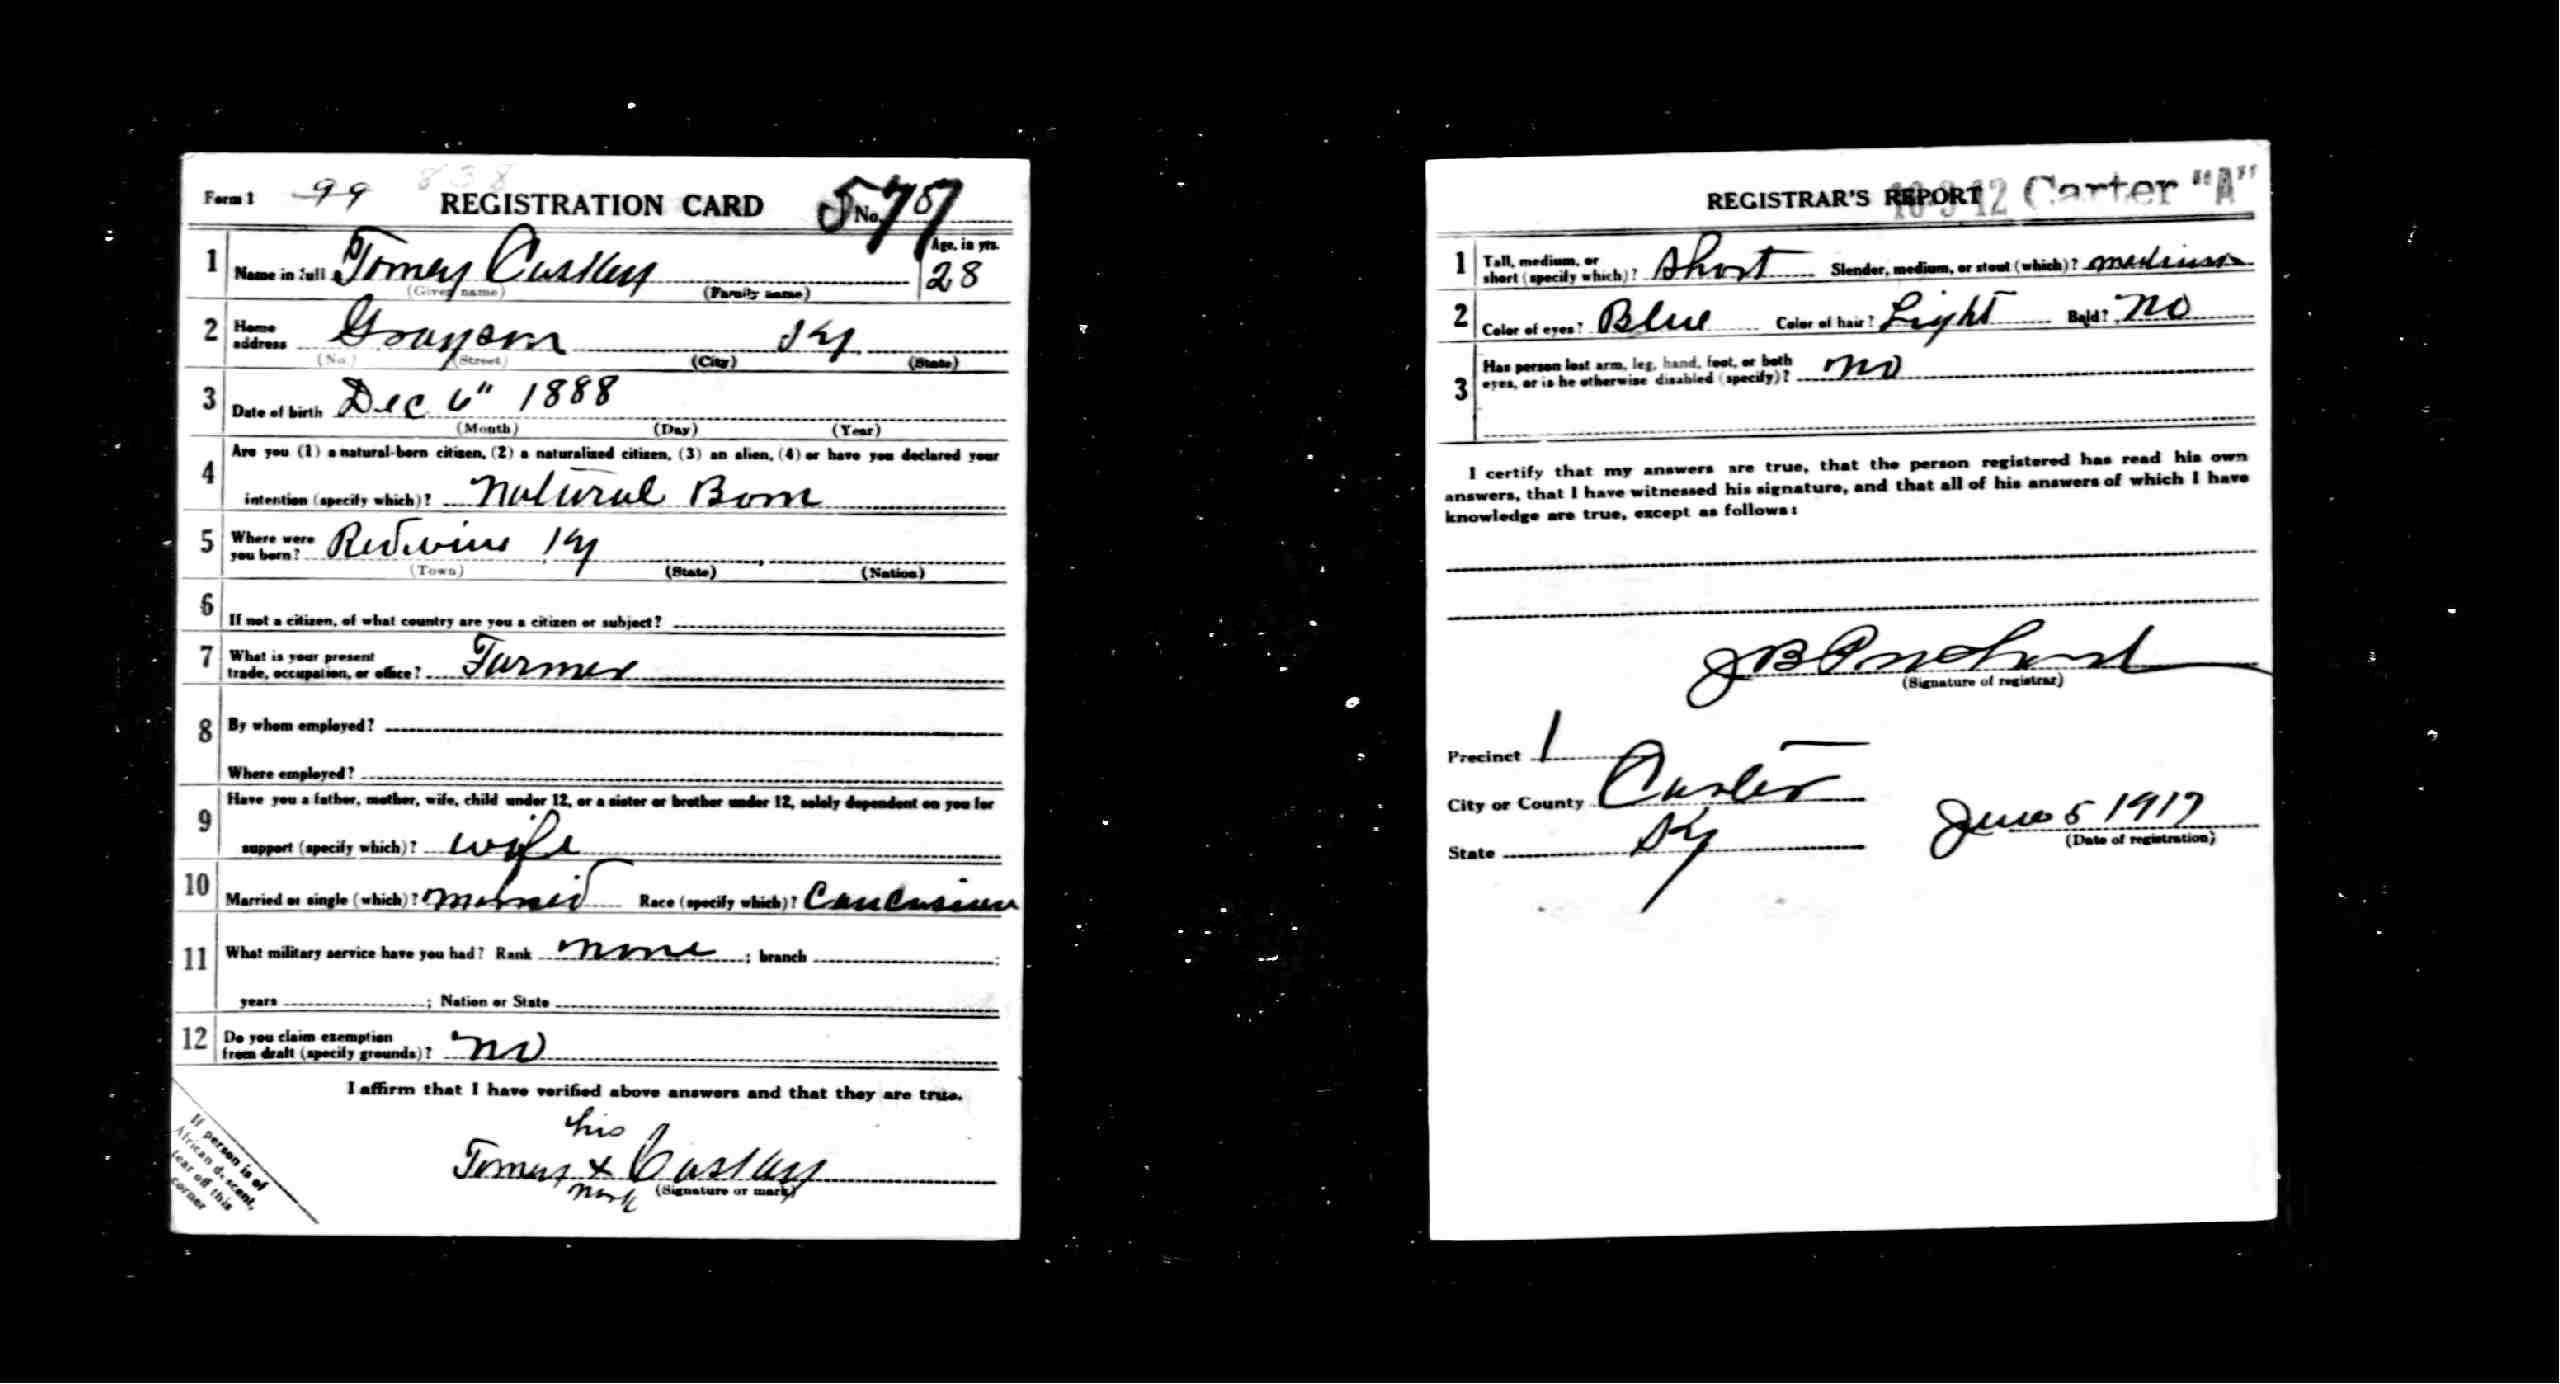 Form 1 99 838 REGISTRATION CARD No. 577
1 Name in full Tomey Caskey Age, in yrs. 28
(Given name) (Family name)
2 Home address Grayson Ky
(No.) (Street) (City) (State)
3 Date of birth Dec 6" 1888
(Month) (Day) (Year)
4 Are you (1) a natural-born citizen, (2) a naturalized citizen, (3) an alien, (4) or have you declared your
intention (specify which)? Natural Born
5 Where were you born? Redwine Ky
(Town) (State) (Nation)
6 If not a citizen, of what country are you a citizen or subject?
7 What is your present
trade, occupation, or office? Farmer
8 By whom employed?
Where employed?
9 Have you a father, mother, wife, child under 12, or a sister or brother under 12, solely dependent on you for
support (specify which)? wife
10 Married or single (which)? married Race (specify which)? Caucasian
11 What military service have you had? Rank none ; branch ;
years ; Nation or State
12 Do you claim exemption
from draft (specify grounds)? no
I affirm that I have verified above answers and that they are true.
his
Tomey x Caskey
mark (Signature or mark)
If person is of
African descent,
tear off this
corner
REGISTRAR'S REPORT 16-3-12 Carter "A"
1 Tall, medium, or
short (specify which)? Short Slender, medium, or stout (which)? medium
2 Color of eyes? Blue Color of hair? Light Bald? no
3 Has person lost arm, leg, hand, foot, or both
eyes, or is he otherwise disabled (specify)? no
I certify that my answers are true, that the person registered has read his own
answers, that I have witnessed his signature, and that all of his answers of which I have
knowledge are true, except as follows:
J B Prichard
(Signature of registrar)
Precinct 1
City or County Carter
State Ky
June 5 1917
(Date of registration)